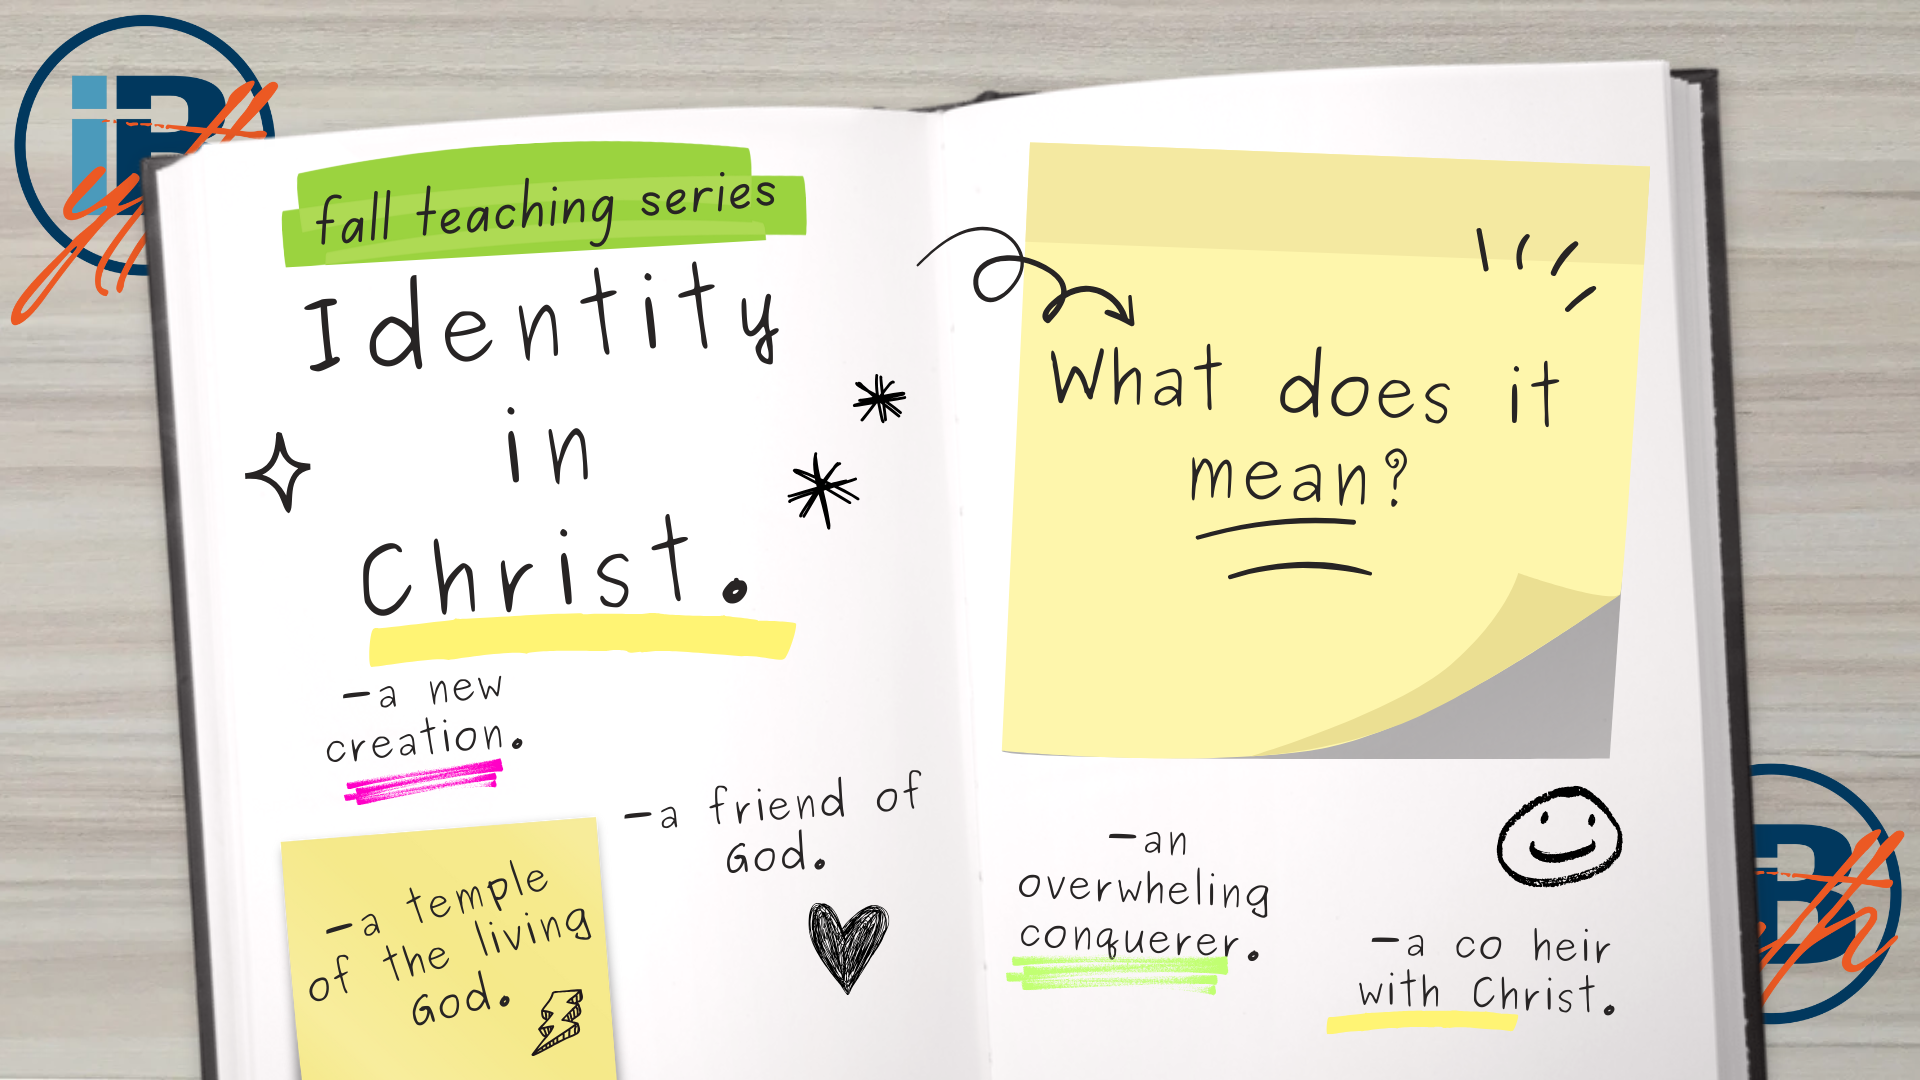 iB
yth
fall teaching series
Identity
in
Christ.
-a new
creation.
-a friend of
God.
-a temple
of the living
God.
What does it
mean?
-an
overwheling
conquerer.
-a co heir
with Christ.
B
th